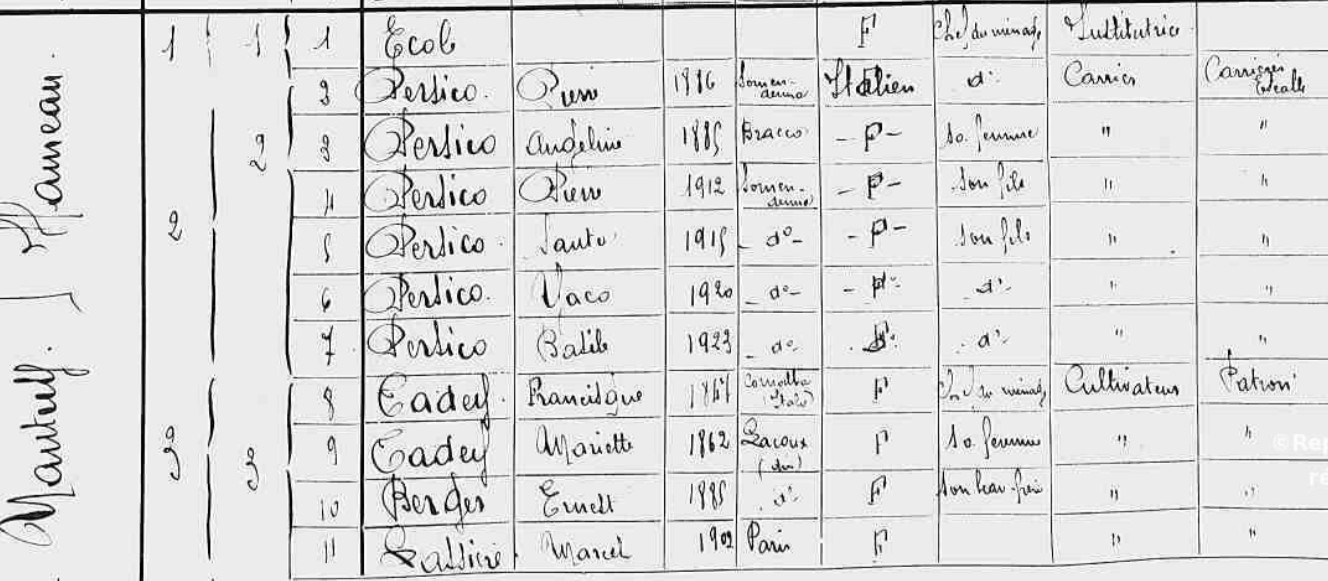 Hameau.
1 1 1 Ecole F Chef du ménage Institutrice
2 Persico. Pierre 1886 Italien d° Carrier Carrières
2 3 Persico Angeline 1885 Bracco - F - sa femme " "
4 Persico Pierre 1912 - F - son fils " "
2 5 Persico. Santo 1915 - d° - - F - son fils " "
6 Persico. Vaco 1920 - d° - - F - d° " "
7 Persico Basile 1923 - d° - d° " "
8 Cadey. Francisque F Chef du ménage Cultivateur Patron
3 3 9 Cadey Mariette 1862 Lacoux (Ain) F sa femme " "
10 Berger Ernest 1885 d° F son beau-frère " "
11 Marcel 1902 Paris F " "